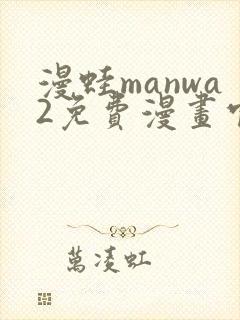 漫蛙manwa
2免費漫畫
萬凌虹